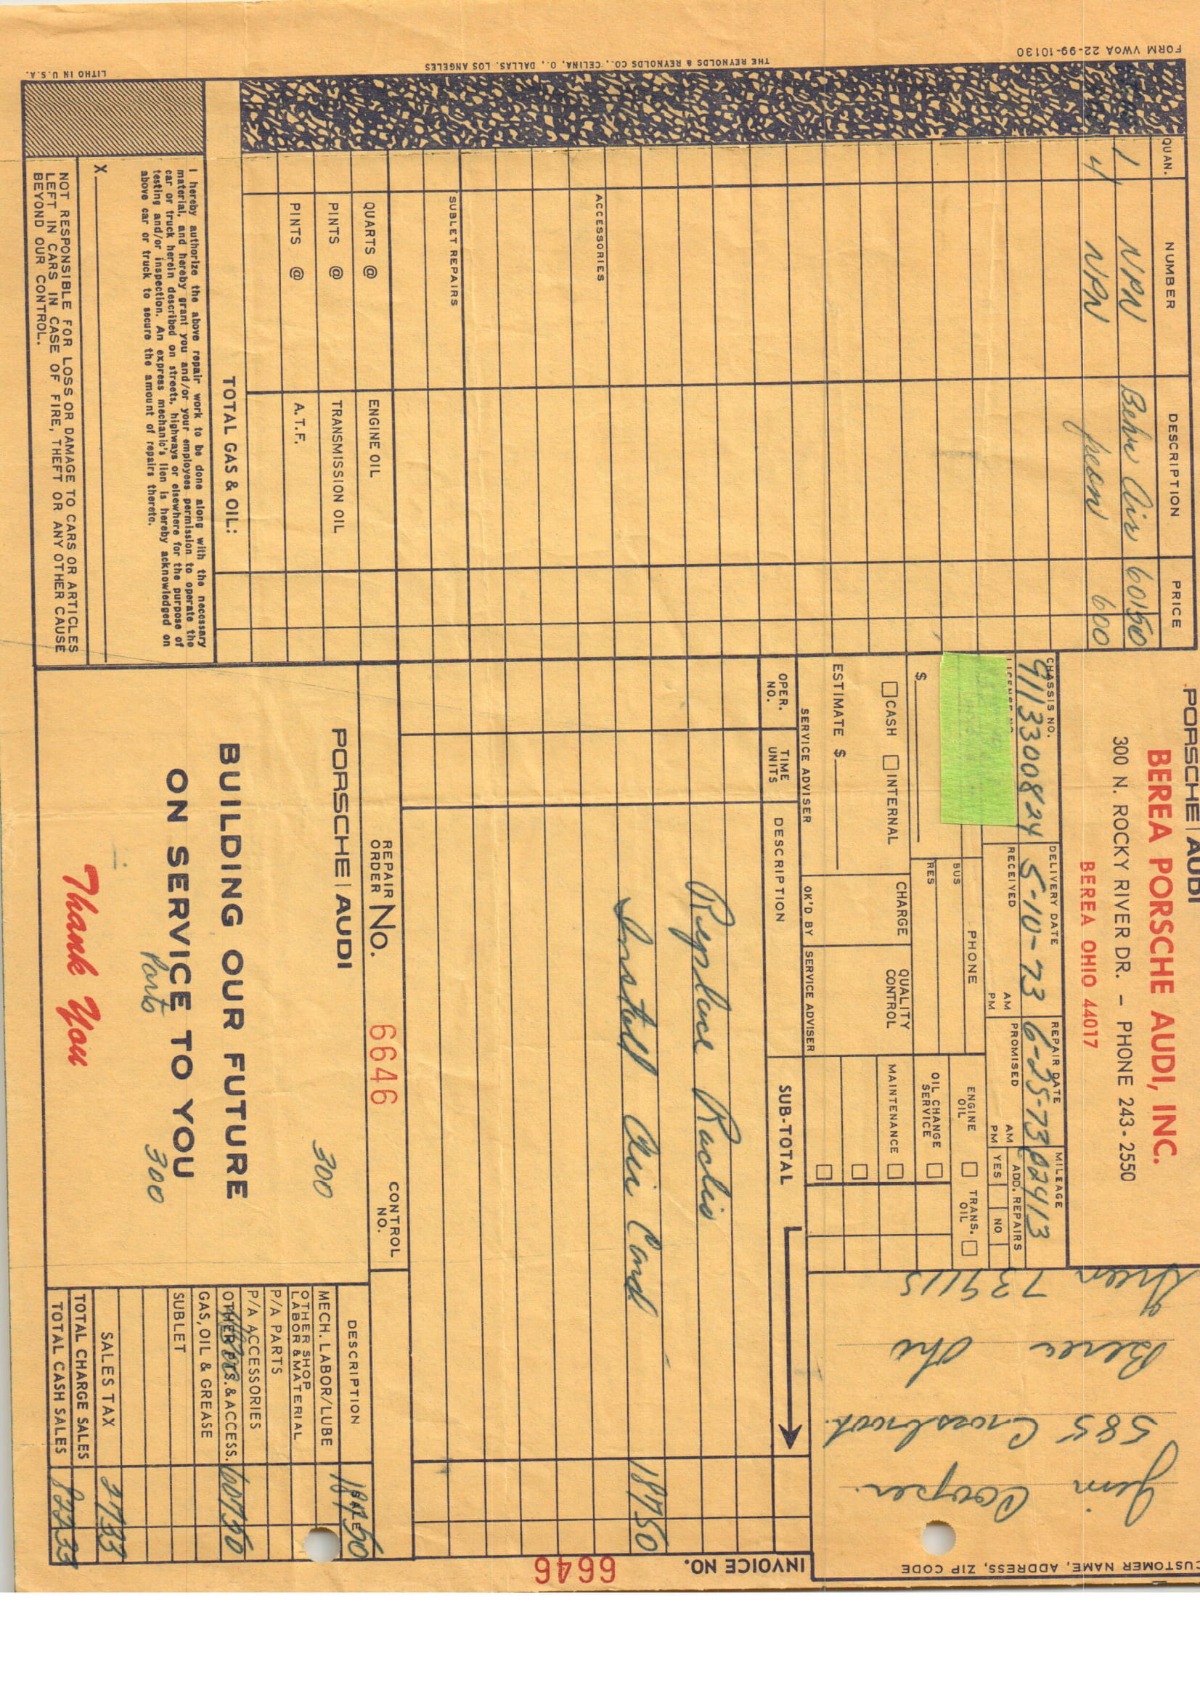 PORSCHE | AUDI
BEREA PORSCHE AUDI, INC.
300 N. ROCKY RIVER DR. – PHONE 243-2550
BEREA OHIO 44017
CUSTOMER NAME, ADDRESS, ZIP CODE
Jim Cooper
585
Berea Ohio
Green
INVOICE NO. 6646
CHASSIS NO. 9113300824
DELIVERY DATE 5-10-73
REPAIR DATE 6-25-73
MILEAGE 02413
LICENSE NO.
RECEIVED AM PM
PROMISED AM PM
ADD. REPAIRS YES NO
PHONE
BUS
RES
ENGINE OIL
TRANS. OIL
OIL CHANGE SERVICE
MAINTENANCE
$
CASH INTERNAL CHARGE
QUALITY CONTROL
ESTIMATE $
SERVICE ADVISER OK'D BY SERVICE ADVISER
OPER. NO. TIME UNITS DESCRIPTION SUB-TOTAL
Replace Radio
Install Air Cond 187 50
QUAN. NUMBER DESCRIPTION PRICE
1 NPN Behr Air 601 50
4 NPN freon 6 00
ACCESSORIES
SUBLET REPAIRS
QUARTS @ ENGINE OIL
PINTS @ TRANSMISSION OIL
PINTS @ A.T.F.
TOTAL GAS & OIL:
I hereby authorize the above repair work to be done along with the necessary
material, and hereby grant you and/or your employees permission to operate the
car or truck herein described on streets, highways or elsewhere for the purpose of
testing and/or inspection. An express mechanic's lien is hereby acknowledged on
above car or truck to secure the amount of repairs thereto.
X
NOT RESPONSIBLE FOR LOSS OR DAMAGE TO CARS OR ARTICLES
LEFT IN CARS IN CASE OF FIRE, THEFT OR ANY OTHER CAUSE
BEYOND OUR CONTROL.
REPAIR ORDER No. 6646
CONTROL NO.
PORSCHE | AUDI
300
BUILDING OUR FUTURE
ON SERVICE TO YOU
Parts 300
Thank You
DESCRIPTION SALE
MECH. LABOR/LUBE 187 50
OTHER SHOP LABOR & MATERIAL
P/A PARTS
P/A ACCESSORIES
OTHER PTS. & ACCESS. 607 50
GAS, OIL & GREASE
SUBLET
SALES TAX 27 33
TOTAL CHARGE SALES
TOTAL CASH SALES 822 33
FORM VWOA 22-99-10130
THE REYNOLDS & REYNOLDS CO., CELINA, O., DALLAS, LOS ANGELES
LITHO IN U.S.A.